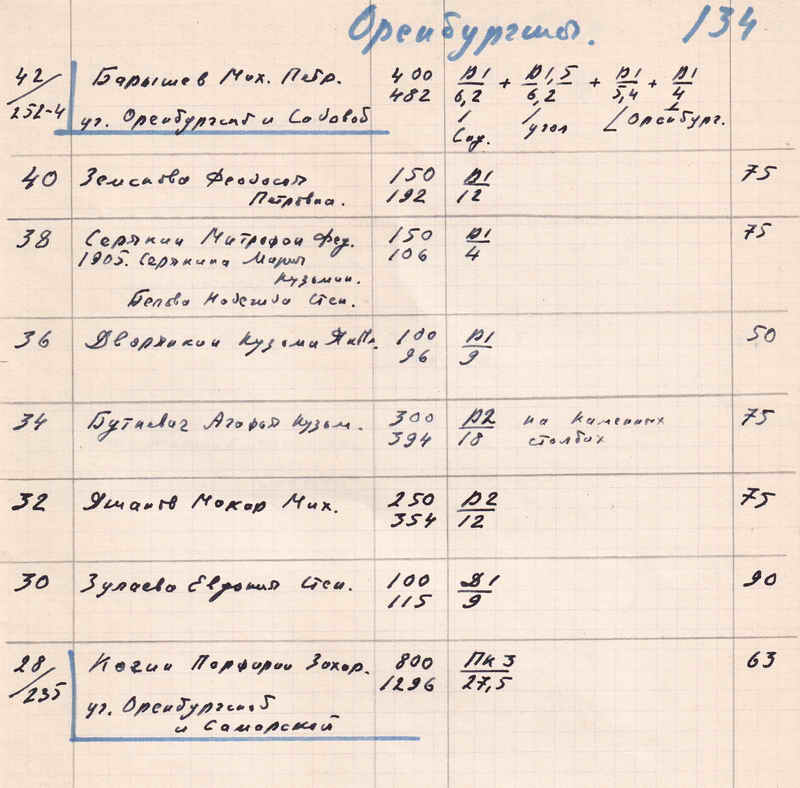 Оренбургская. 134
42/252-4 Барышев Мих. Петр. 400 482 Д1/6,2 + Д1,5/6,2 + Д1/5,4 + Д1/4
уг. Оренбургской и Садовой Сад. угол Оренбург.
40 Феодосия 150 Д1 75
Петровна. 192 12
38 Серякин Митрофан Фед. 150 Д1 75
1905. Серякина Мария 106 4
Кузьмин.
Белова Надежда Степ.
36 Дворянкин Кузьма 100 Д1 50
96 9
34 Буткевич Агафья Кузьм. 300 Д2 на каменных 75
394 18 столбах
32 Макар Мих. 250 Д2 75
354 12
30 Зулаева Евдокия Степ. 100 Д1 90
115 9
28/235 Порфирий Захар. 800 Пк 3 63
1296 27,5
уг. Оренбургской
и Самарской